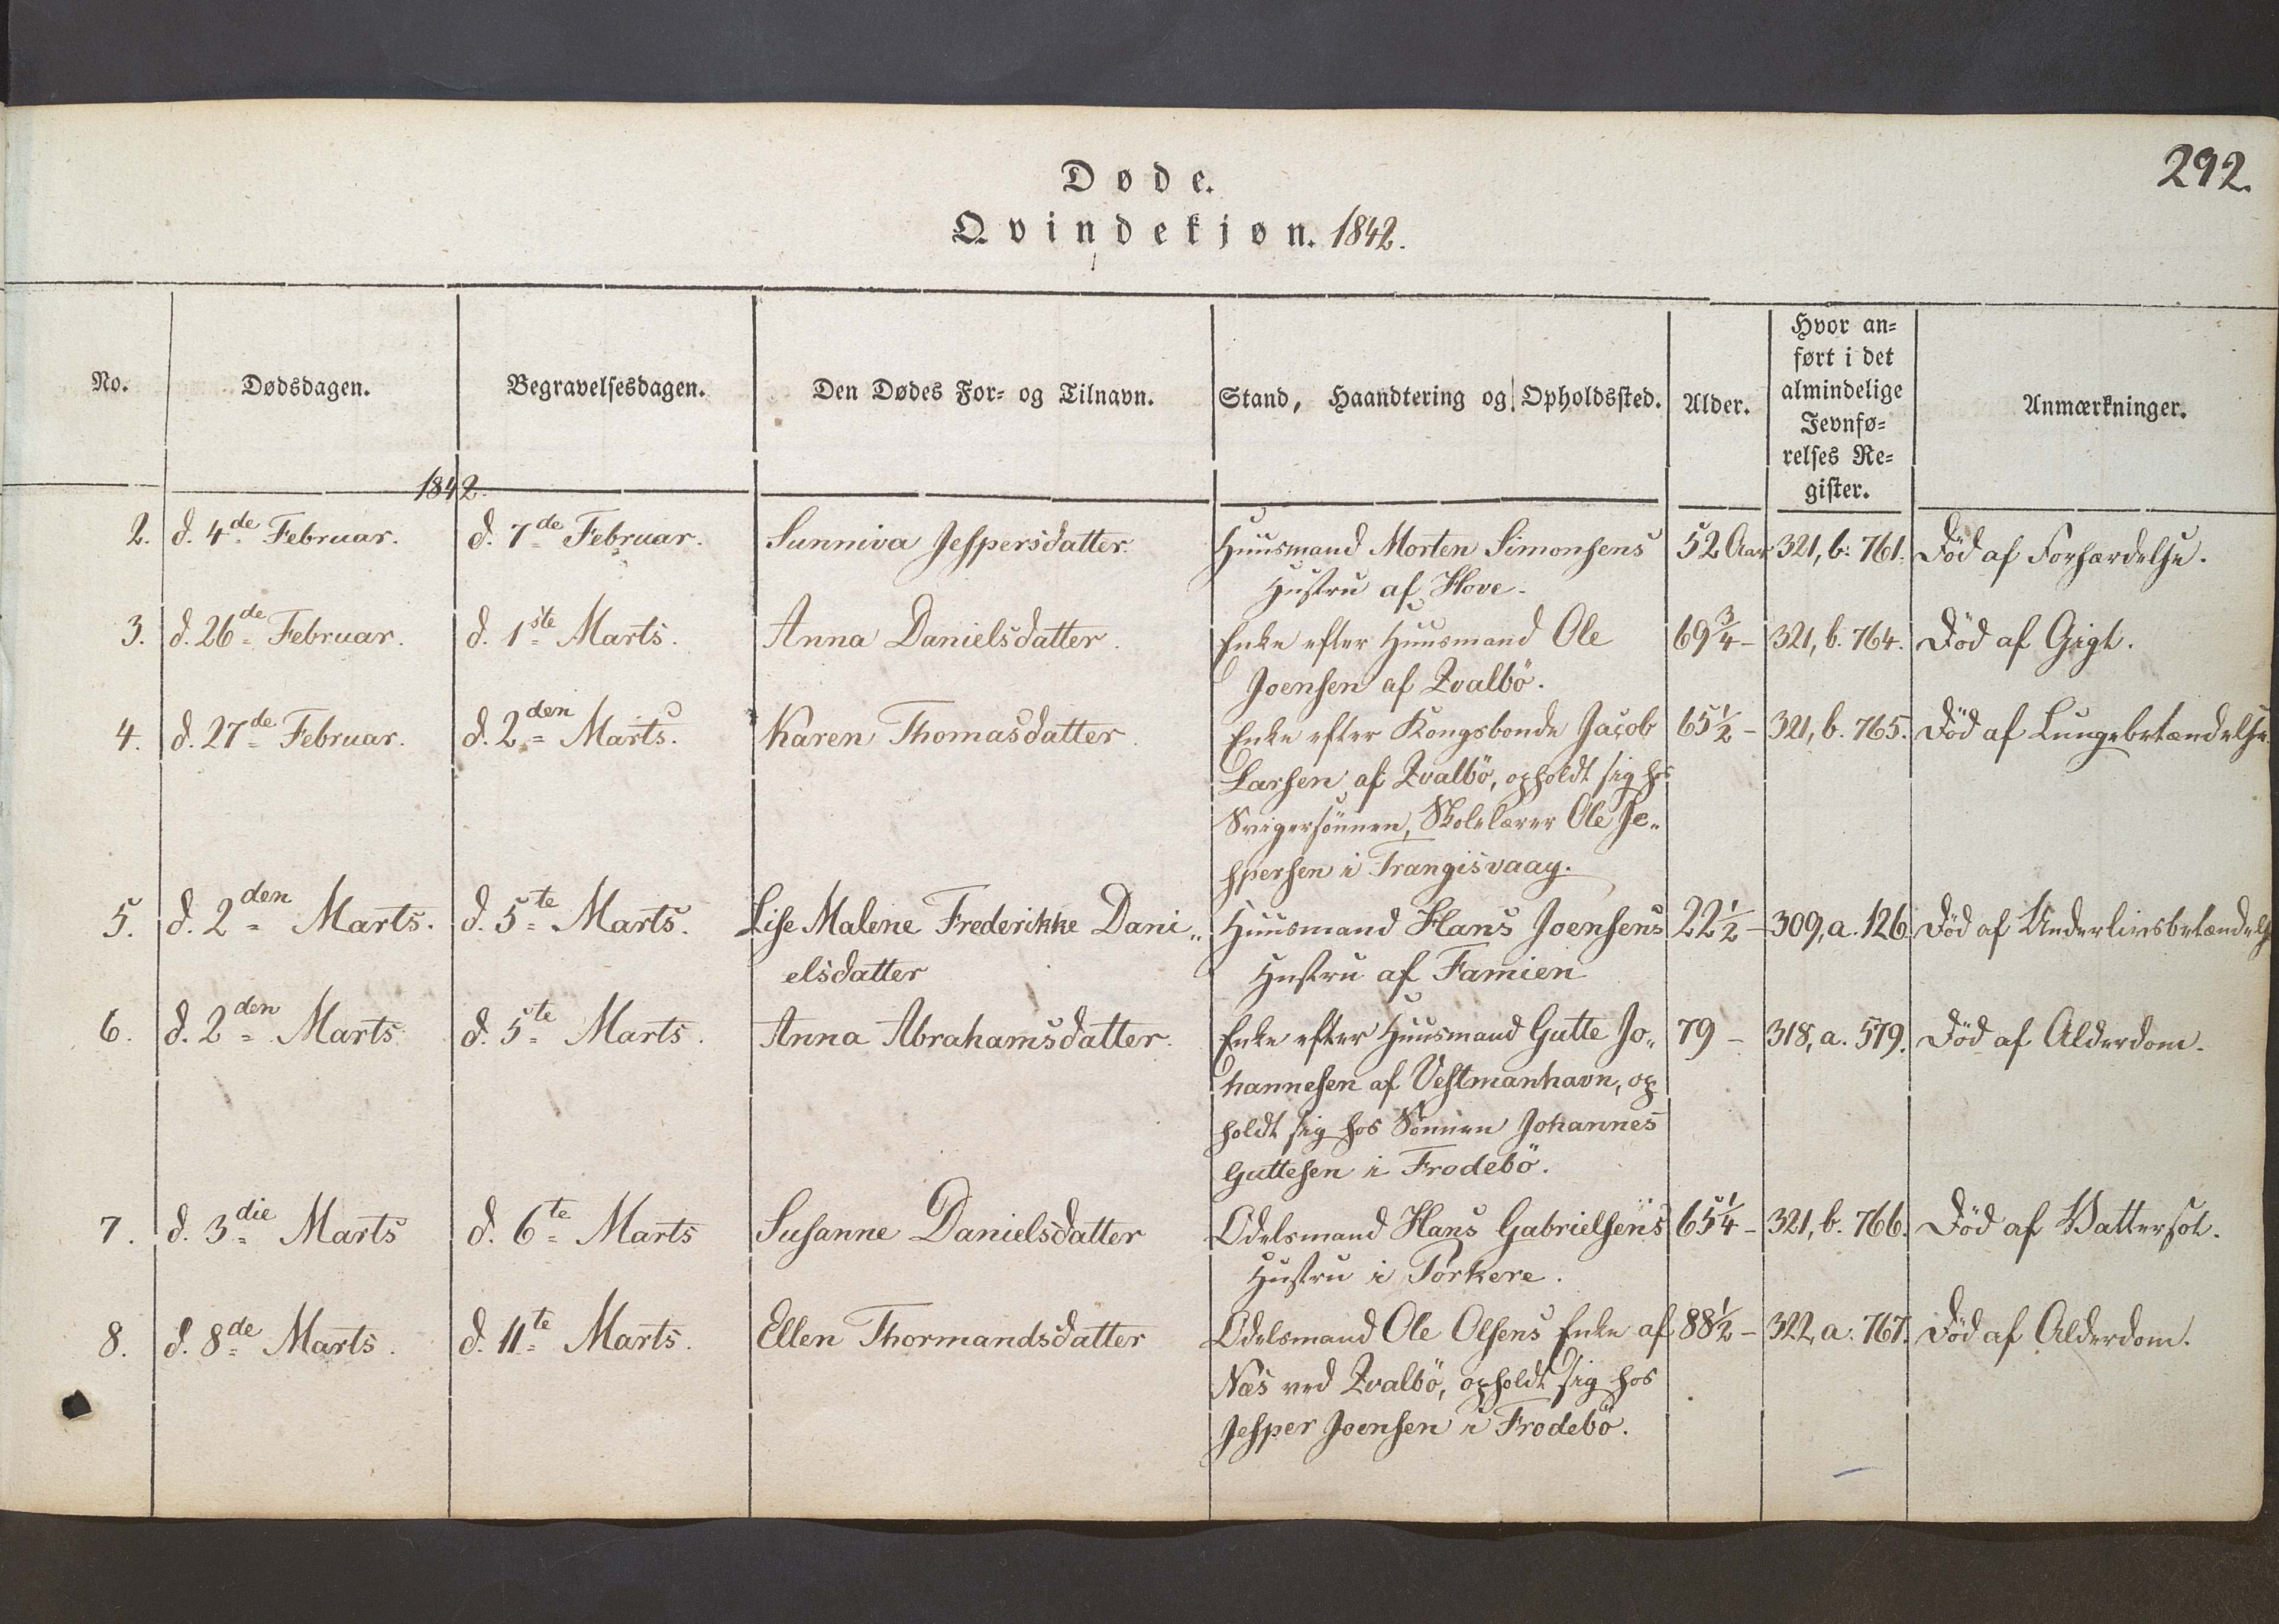 292.
Døde.
Qvindekjøn. 1842.
No.
Dødsdagen.
Begravelsesdagen.
Den Dødes For- og Tilnavn.
Stand, Haandtering og Opholdssted.
Alder.
Hvor an=
ført i det
almindelige
Jevnfø=
relses Re=
gister.
Anmærkninger.
1842.
2. d. 4de Februar. d. 7de Februar. Sunniva Jespersdatter. Huusmand Morten Simonsens 52 Aar 321, b. 761. Död af Forhærdelse.
Hustru af Hove.
3. d. 26de Februar. d. 1ste Marts. Anna Danielsdatter. Enke efter Huusmand Ole 69 3/4 - 321, b. 764. Död af Gigt.
Joensen af Qvalbö.
4. d. 27de Februar. d. 2den Marts. Karen Thomasdatter. Enke efter Kongsbonde Jacob 65 1/2 - 321, b. 765. Död af Lungebetændelse.
Larsen af Qvalbö, opholdt sig hos
Svigersönnen, Skolelærer Ole Je„
spersen i Trangisvaag.
5. d. 2den Marts. d. 5te Marts. Lise Malene Frederikke Dani„ Huusmand Hans Joensens 22 1/2 - 309, a. 126. Död af Underlivsbetændelse
elsdatter Hustru af Famien
6. d. 2den Marts d. 5te Marts. Anna Abrahamsdatter. Enke efter Huusmand Gutte Jo„ 79 - 318, a. 579. Död af Alderdom.
hannesen af Vestmanhavn, op
holdt sig hos Sönnen Johannes
Guttesen i Frodebö.
7. d. 3die Marts d. 6te Marts Susanne Danielsdatter Odelsmand Hans Gabrielsens 65 1/4 - 321, b. 766. Död af Vattersot.
Hustru i Porkere.
8. d. 8de Marts. d. 11te Marts. Ellen Thormandsdatter Odelsmand Ole Olsens Enke af 88 1/2 - 322, a. 767. Död af Alderdom.
Næs ved Qvalbö, opholdt sig hos
Jesper Joensen i Frodebö.